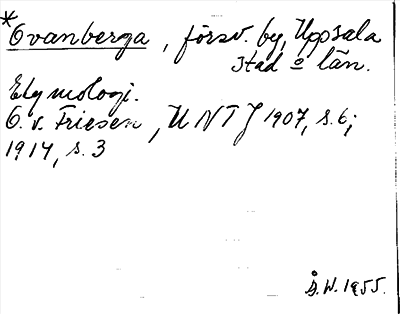 *Ovanberga, försv. by, Uppsala
stad o län.
Etymologi.
O. v. Friesen, UNTJ 1907, s. 6;
1914, s. 3
Å.W. 1955.